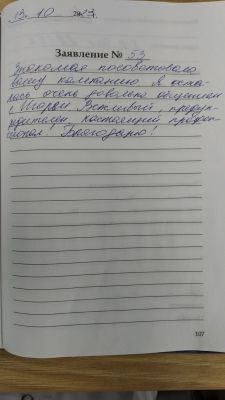 13. 10 2023г.
Заявление № 53
Знакомая посоветовала
вашу компанию. Я оста
лась очень довольна общением
с Игорем. Вежливый, преду
предителен, настоящий професс
ионал! Благодарю!
107